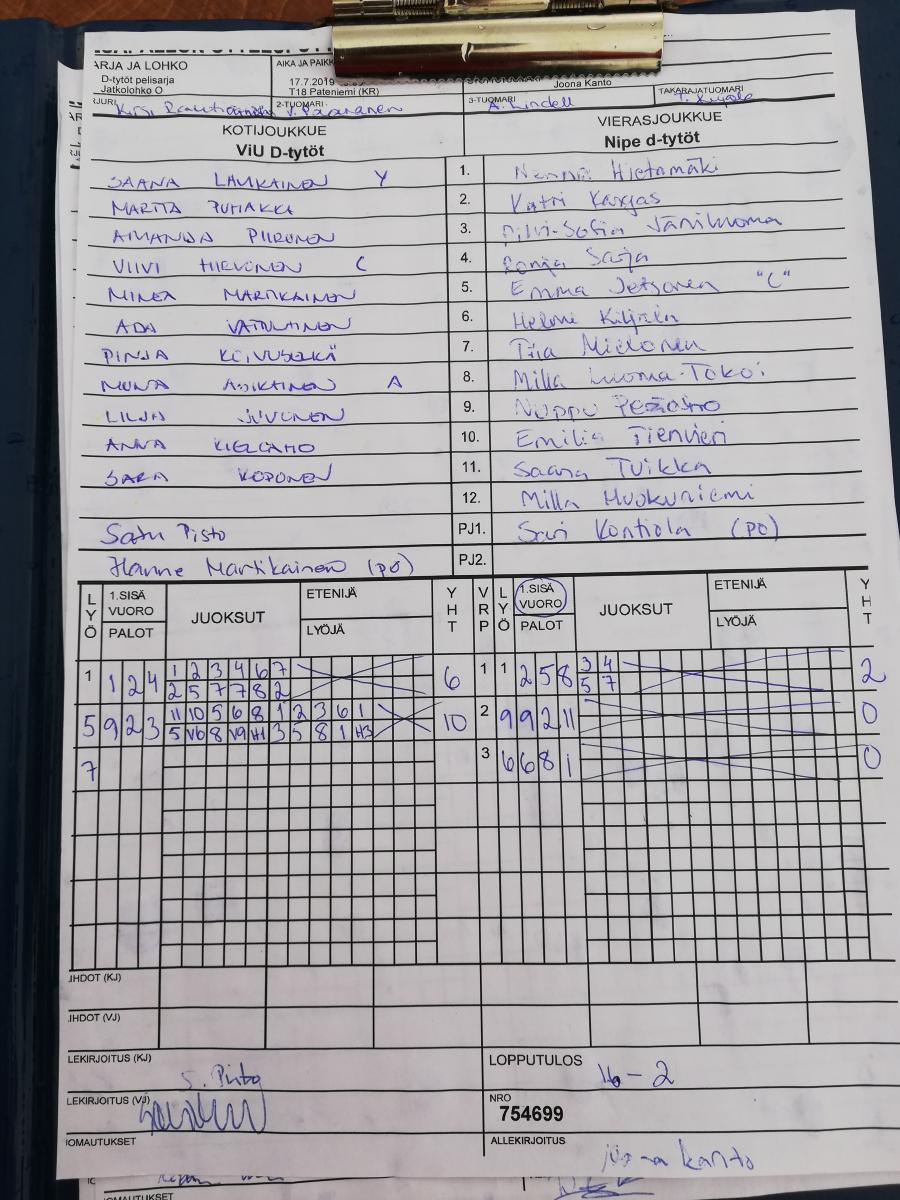 ARJA JA LOHKO
D-tytöt pelisarja
Jatkolohko O
AIKA JA PAIKK
17.7.2019
T18 Pateniemi (KR)
Joona Kanto
2-TUOMARI
3-TUOMARI A. Lindell
TAKARAJATUOMARI
KOTIJOUKKUE
ViU D-tytöt
VIERASJOUKKUE
Nipe d-tytöt
SAANA LAUKAINEN Y 1. Hietamäki
MARTTA PUHAKKA 2. Katri Kangas
AMANDA PIIRONEN 3. Pilvi-Sofia
VIIVI HIRVONEN C 4. Ronja Sarja
MINEA MARTIKAINEN 5. Emma "C"
ADA 6. Helmi
PINJA KOIVUSELKÄ 7. Tiia Mielonen
ASIKAINEN A 8. Milla Luoma-Tokoi
LILJA JUVONEN 9. Noppu
ANNA 10. Emilia Tienvieri
SARA KOPONEN 11. Saana Tuikka
12. Milla Huokuniemi
Satu Pisto PJ1. Sari Kontiola (PO)
Hanne Martikainen (PO) PJ2.
LYÖ 1.SISÄ VUORO PALOT JUOKSUT ETENIJÄ LYÖJÄ YHT VRP LYÖ 1.SISÄ VUORO PALOT JUOKSUT ETENIJÄ LYÖJÄ YHT
1 1 2 4 1 2 3 4 6 7 6 1 1 2 5 8 3 4 2
2 5 7 7 8 2 5 7
5 9 2 3 11 10 5 6 8 1 2 3 6 1 10 2 9 9 2 11 0
5 V6 8 V9 H1 3 5 8 1 H3
7 3 6 6 8 1 0
IHDOT (KJ)
IHDOT (VJ)
LEKIRJOITUS (KJ) S. Pisto
LOPPUTULOS 16-2
LEKIRJOITUS (VJ)
NRO
754699
IOMAUTUKSET
ALLEKIRJOITUS Joona Kanto
OMAUTUKSET